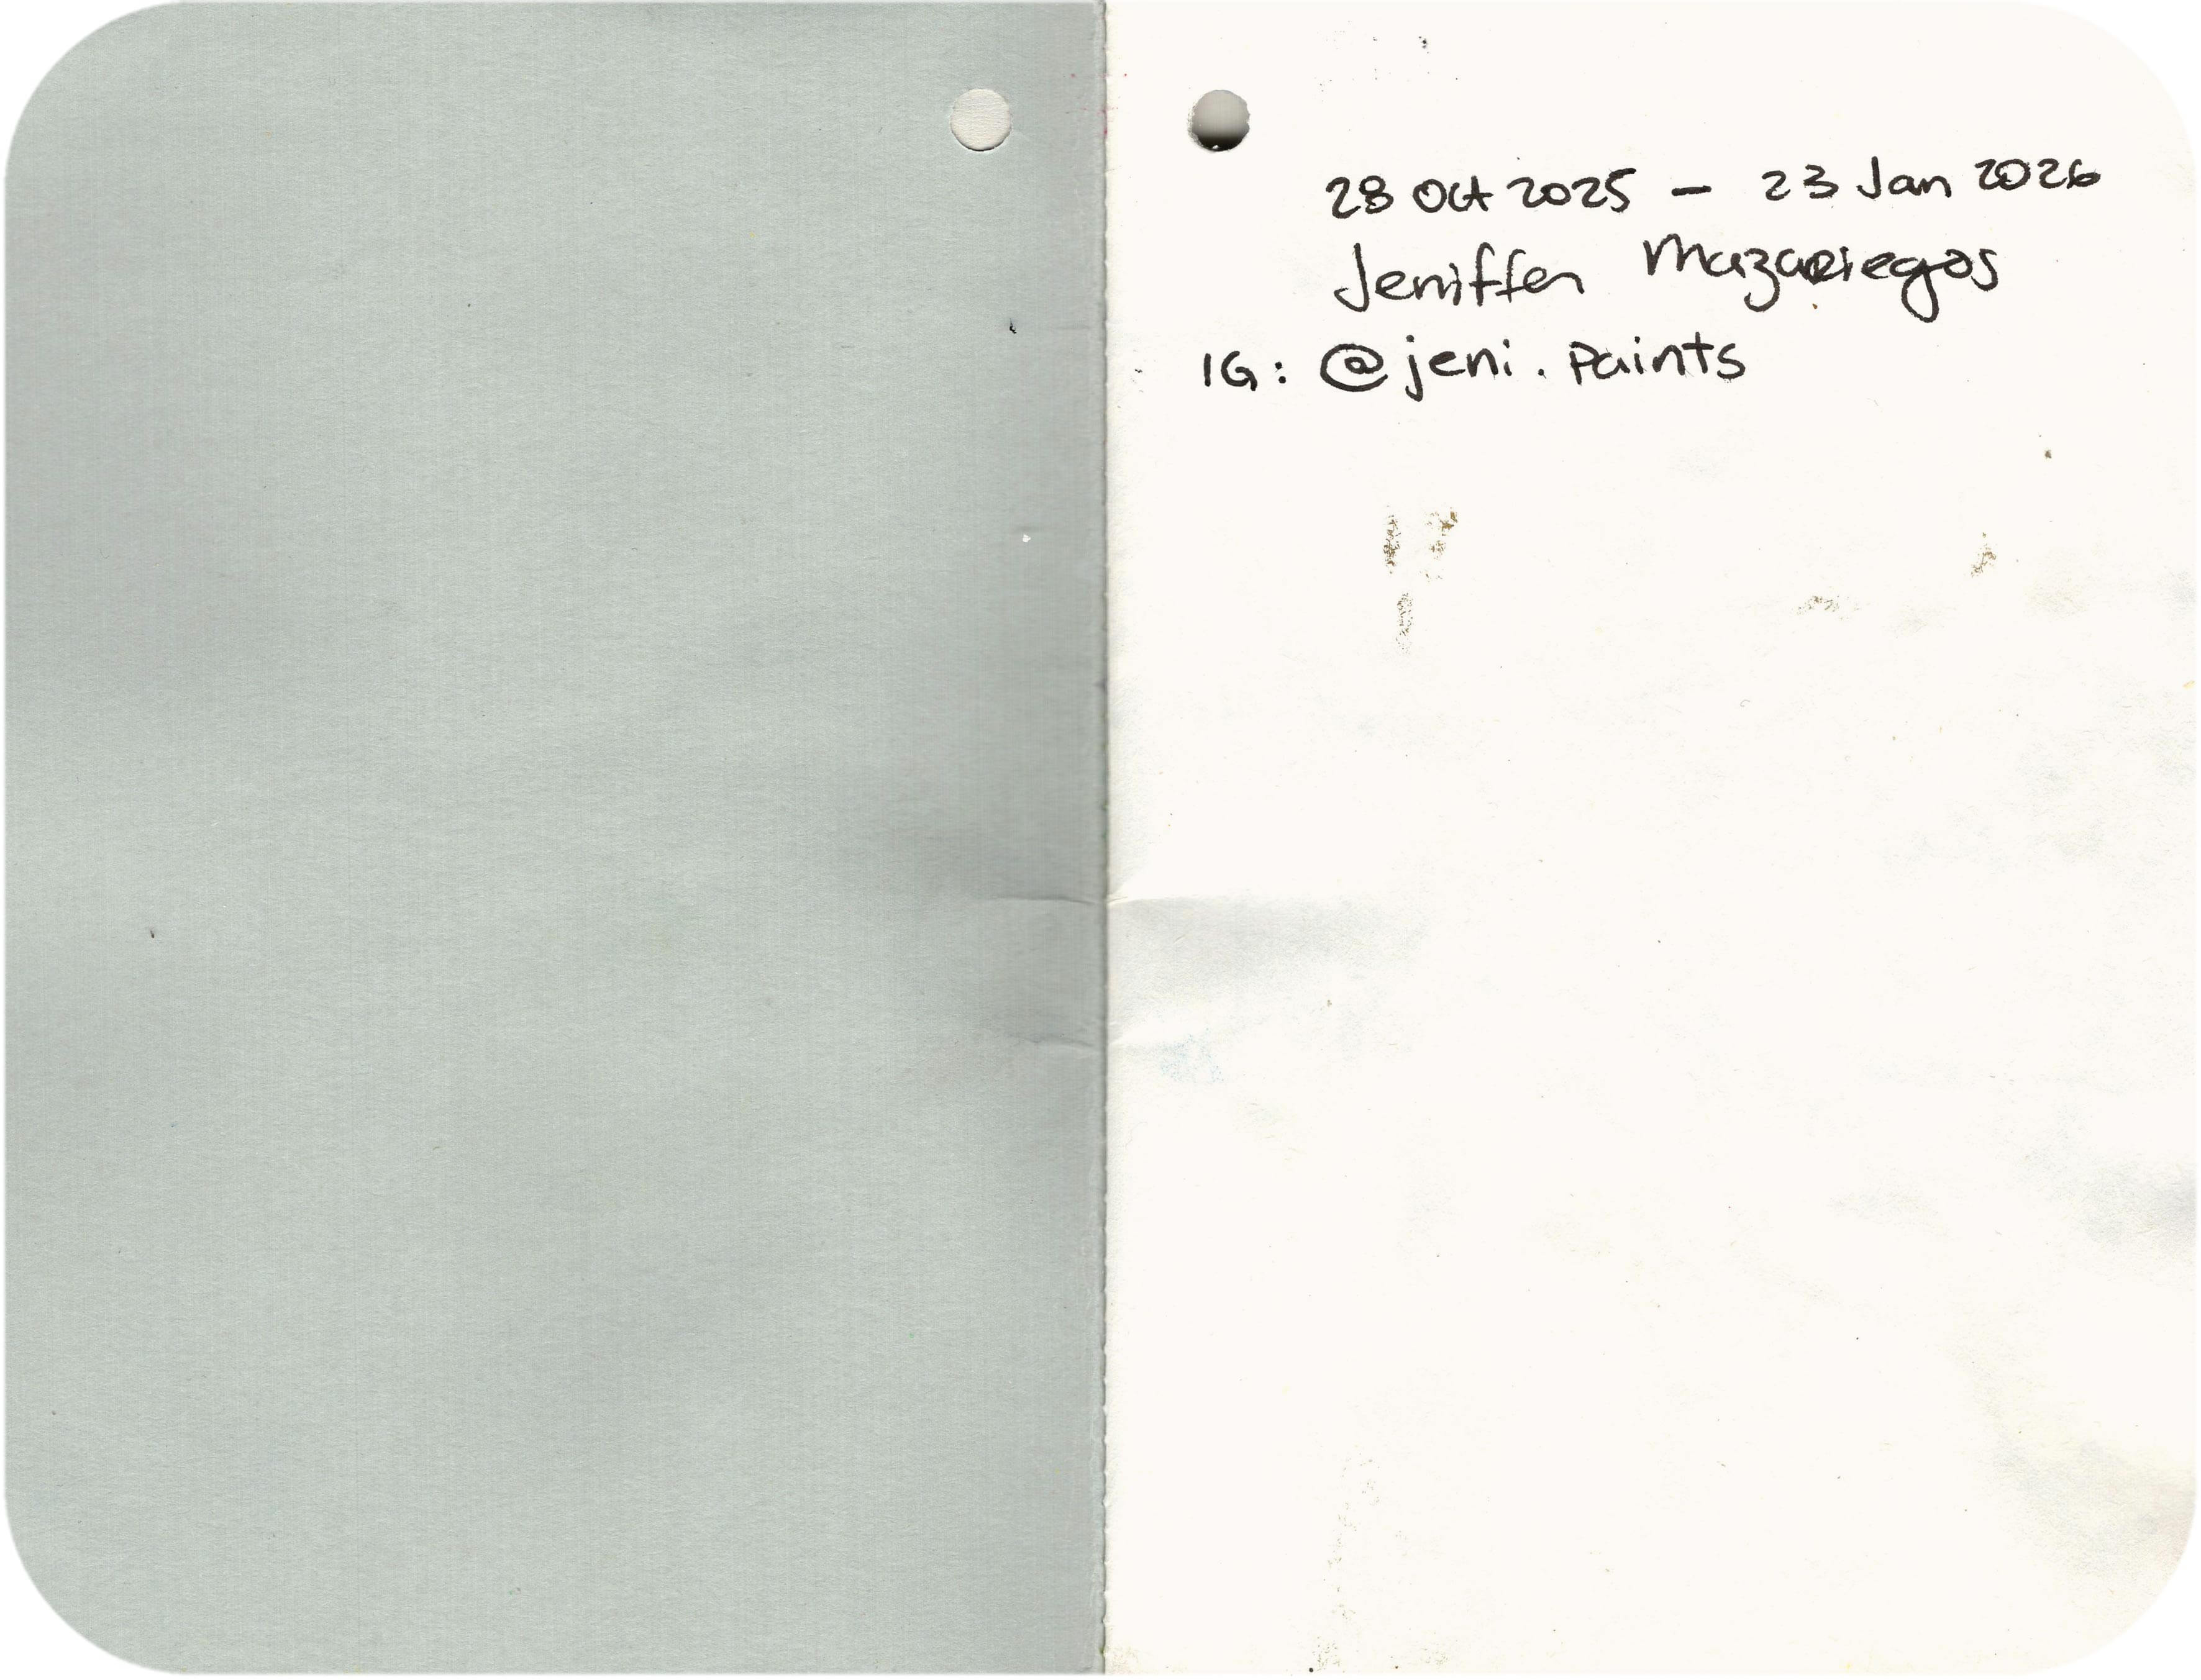 28 Oct 2025 — 23 Jan 2026
Jeniffer Mazariegos
IG: @jeni.paints